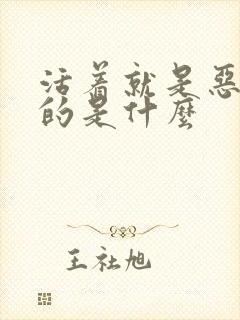 活着就是恶
的是什麼
王社旭